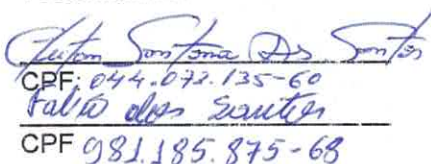 Santana Dos Santos
CPF: 044.072.135-60
Fabio dos Santos
CPF 981.185.875-68